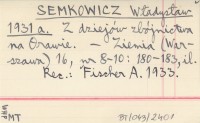 SEMKOWICZ Władysław
1931 a. Z dziejów zbójnictwa
na Orawie. – Ziemia (War-
szawa) 16, nr 8-10: 180-183, il.
Rec.: Fischer A. 1933.
MT
BI/043/2401